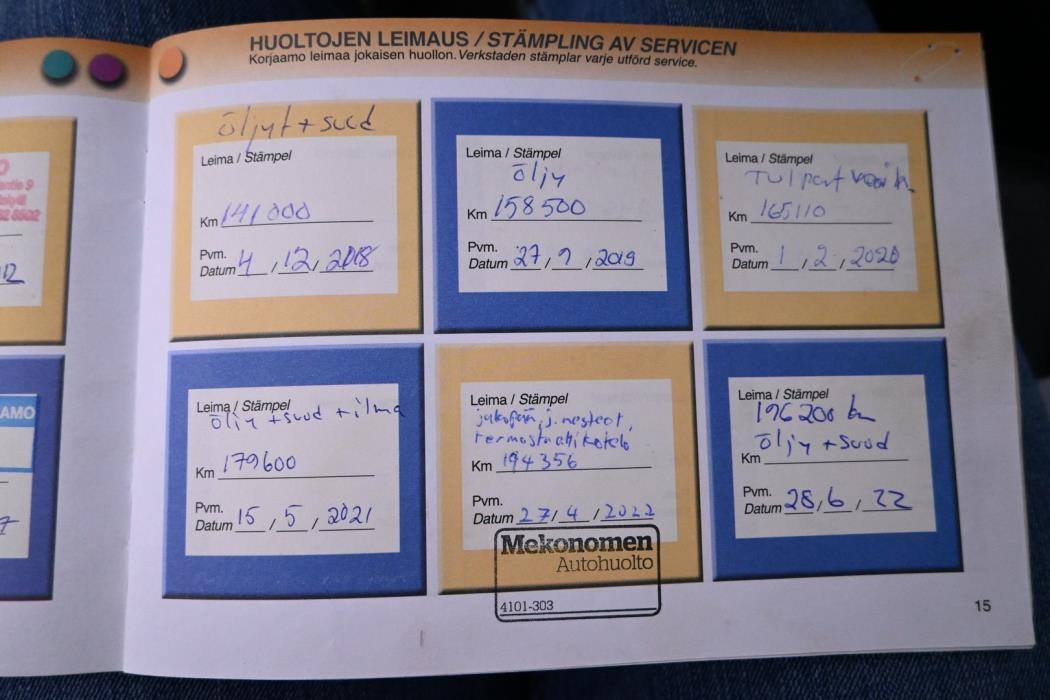 HUOLTOJEN LEIMAUS / STÄMPLING AV SERVICEN
Korjaamo leimaa jokaisen huollon. Verkstaden stämplar varje utförd service.
öljyt + suod
Leima / Stämpel
Km 141 000
Pvm.
Datum 4 / 12 / 2018
Leima / Stämpel
öljy
Km 158 500
Pvm.
Datum 27 / 9 / 2019
Leima / Stämpel
Km 165110
Pvm.
Datum 1 / 2 / 2020
Leima / Stämpel
öljy + suod + ilma
Km 179600
Pvm.
Datum 15 / 5 / 2021
Leima / Stämpel
jakopää, j. nesteet,
termostaattikotelo
Km 194356
Pvm.
Datum 27 / 4 / 2022
Mekonomen
Autohuolto
4101-303
Leima / Stämpel
196200 km
öljy + suod
Km
Pvm.
Datum 28 / 6 / 22
15
AMO